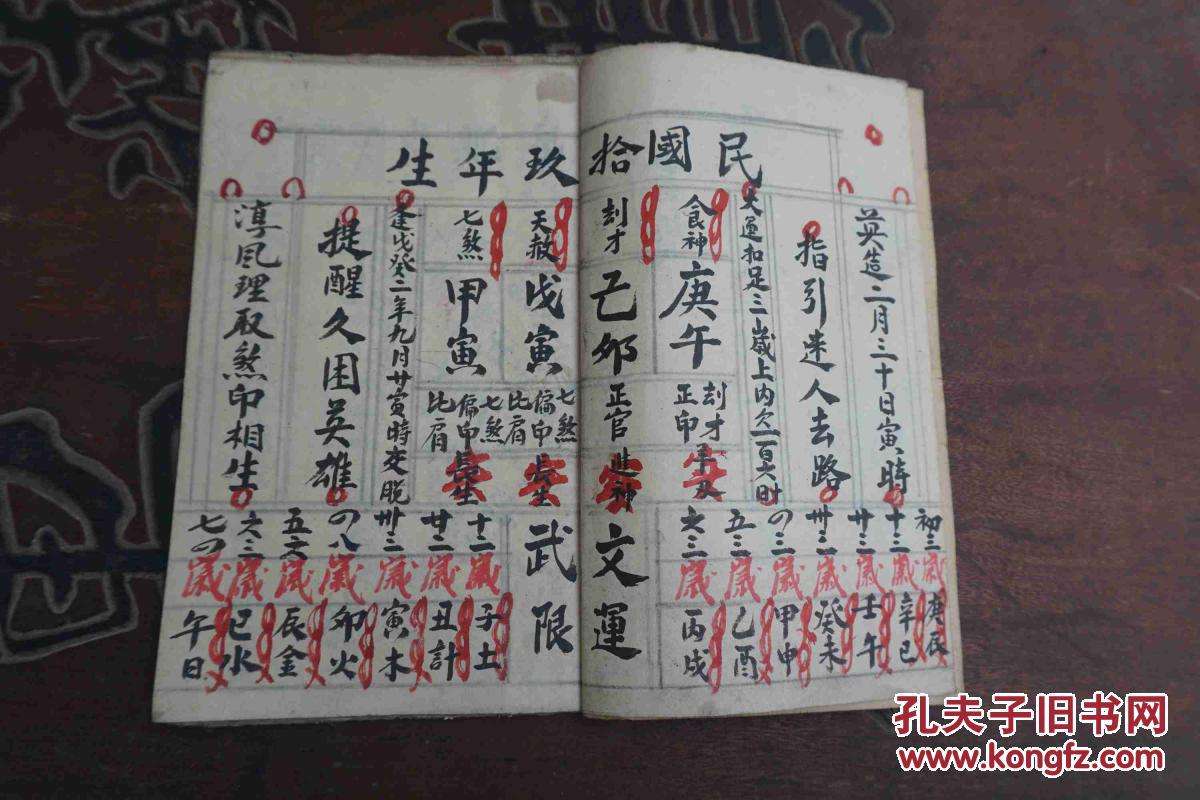 民國拾玖年生
英造二月三十日寅時
指引迷人去路
大運扣足三歲上內欠一百六时
食神
庚午
刦才
正印
刦才
己卯
正官
進神
文運
天赦
戊寅
七煞
偏印
比肩
長生
武限
七煞
甲寅
七煞
偏印
比肩
長生
逢戊癸二年九月廿寅時交脫
提醒久困英雄
淳風理取煞印相生
初三歲庚辰
十三歲辛巳
廿三歲壬午
卅三歲癸未
四三歲甲申
五三歲乙酉
六三歲丙戌
十二歲子土
廿二歲丑計
卅三歲寅木
四八歲卯火
五六歲辰金
六三歲巳水
七四歲午日
孔夫子旧书网
www.kongfz.com